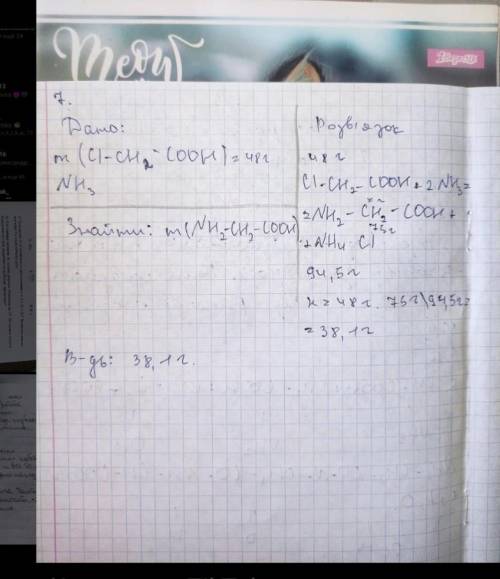 Meow
7.
Дано:
m (Cl-CH₂-COOH) = 48г
NH₃
Знайти: m(NH₂-CH₂-COOH)
В-дь: 38,1г.
Розв'язок
48г
Cl-CH₂-COOH + 2NH₃ =
= NH₂-CH₂-COOH +
75г
+ NH₄Cl
94,5г
x = 48г · 75г\94,5г =
= 38,1г